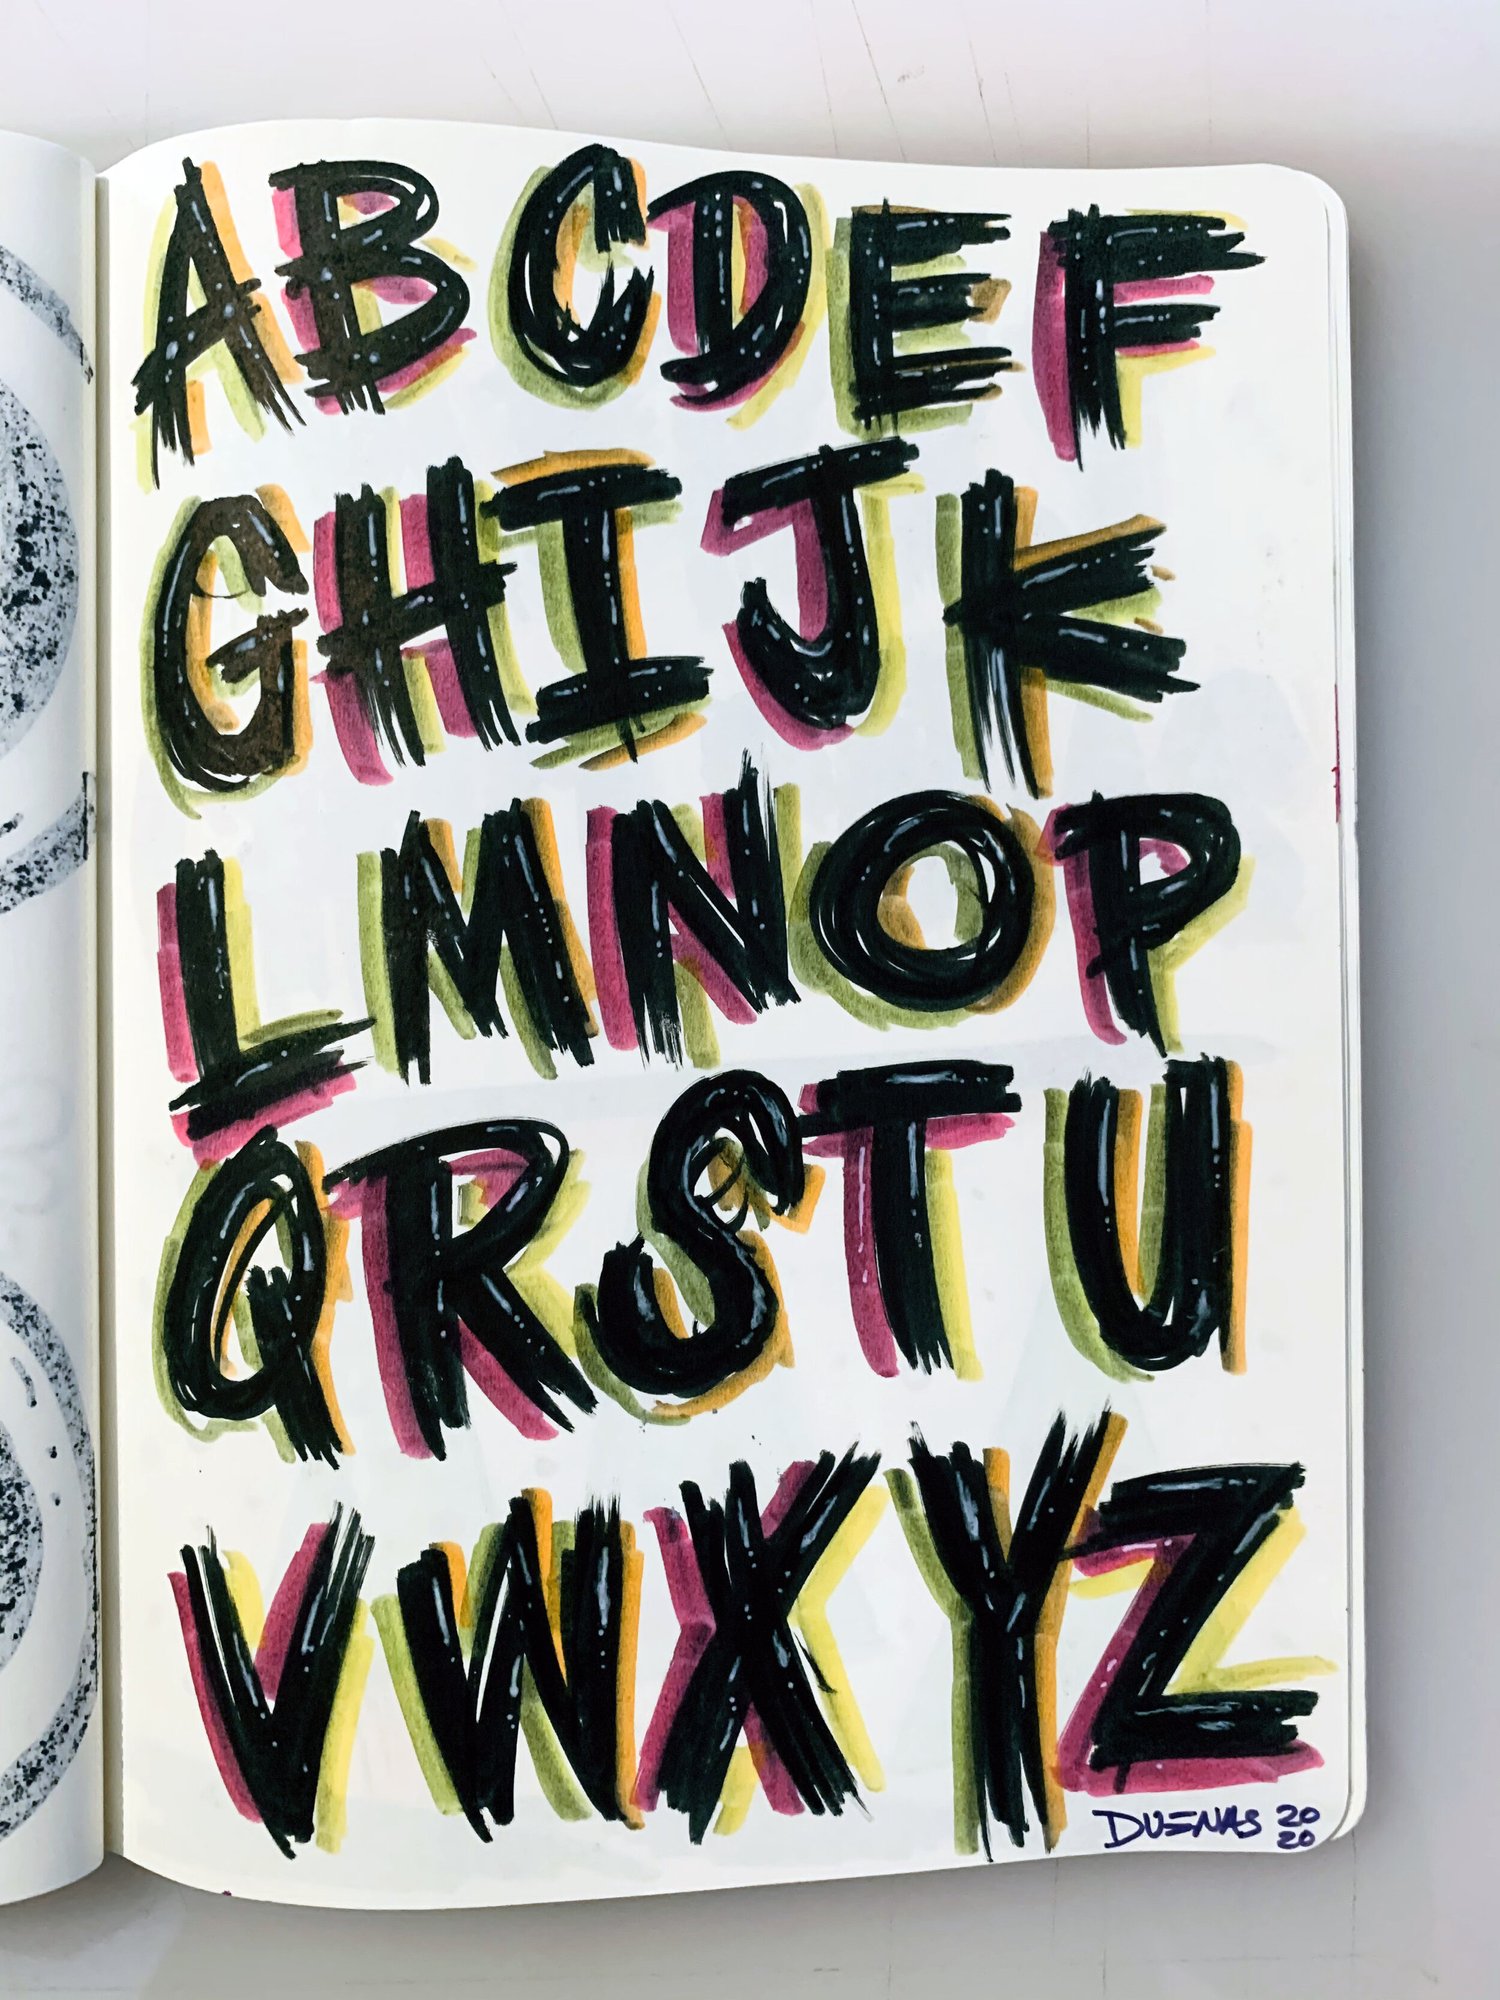 ABCDEF
GHIJK
LMNOP
QRSTU
VWXYZ
DUENAS 20
20